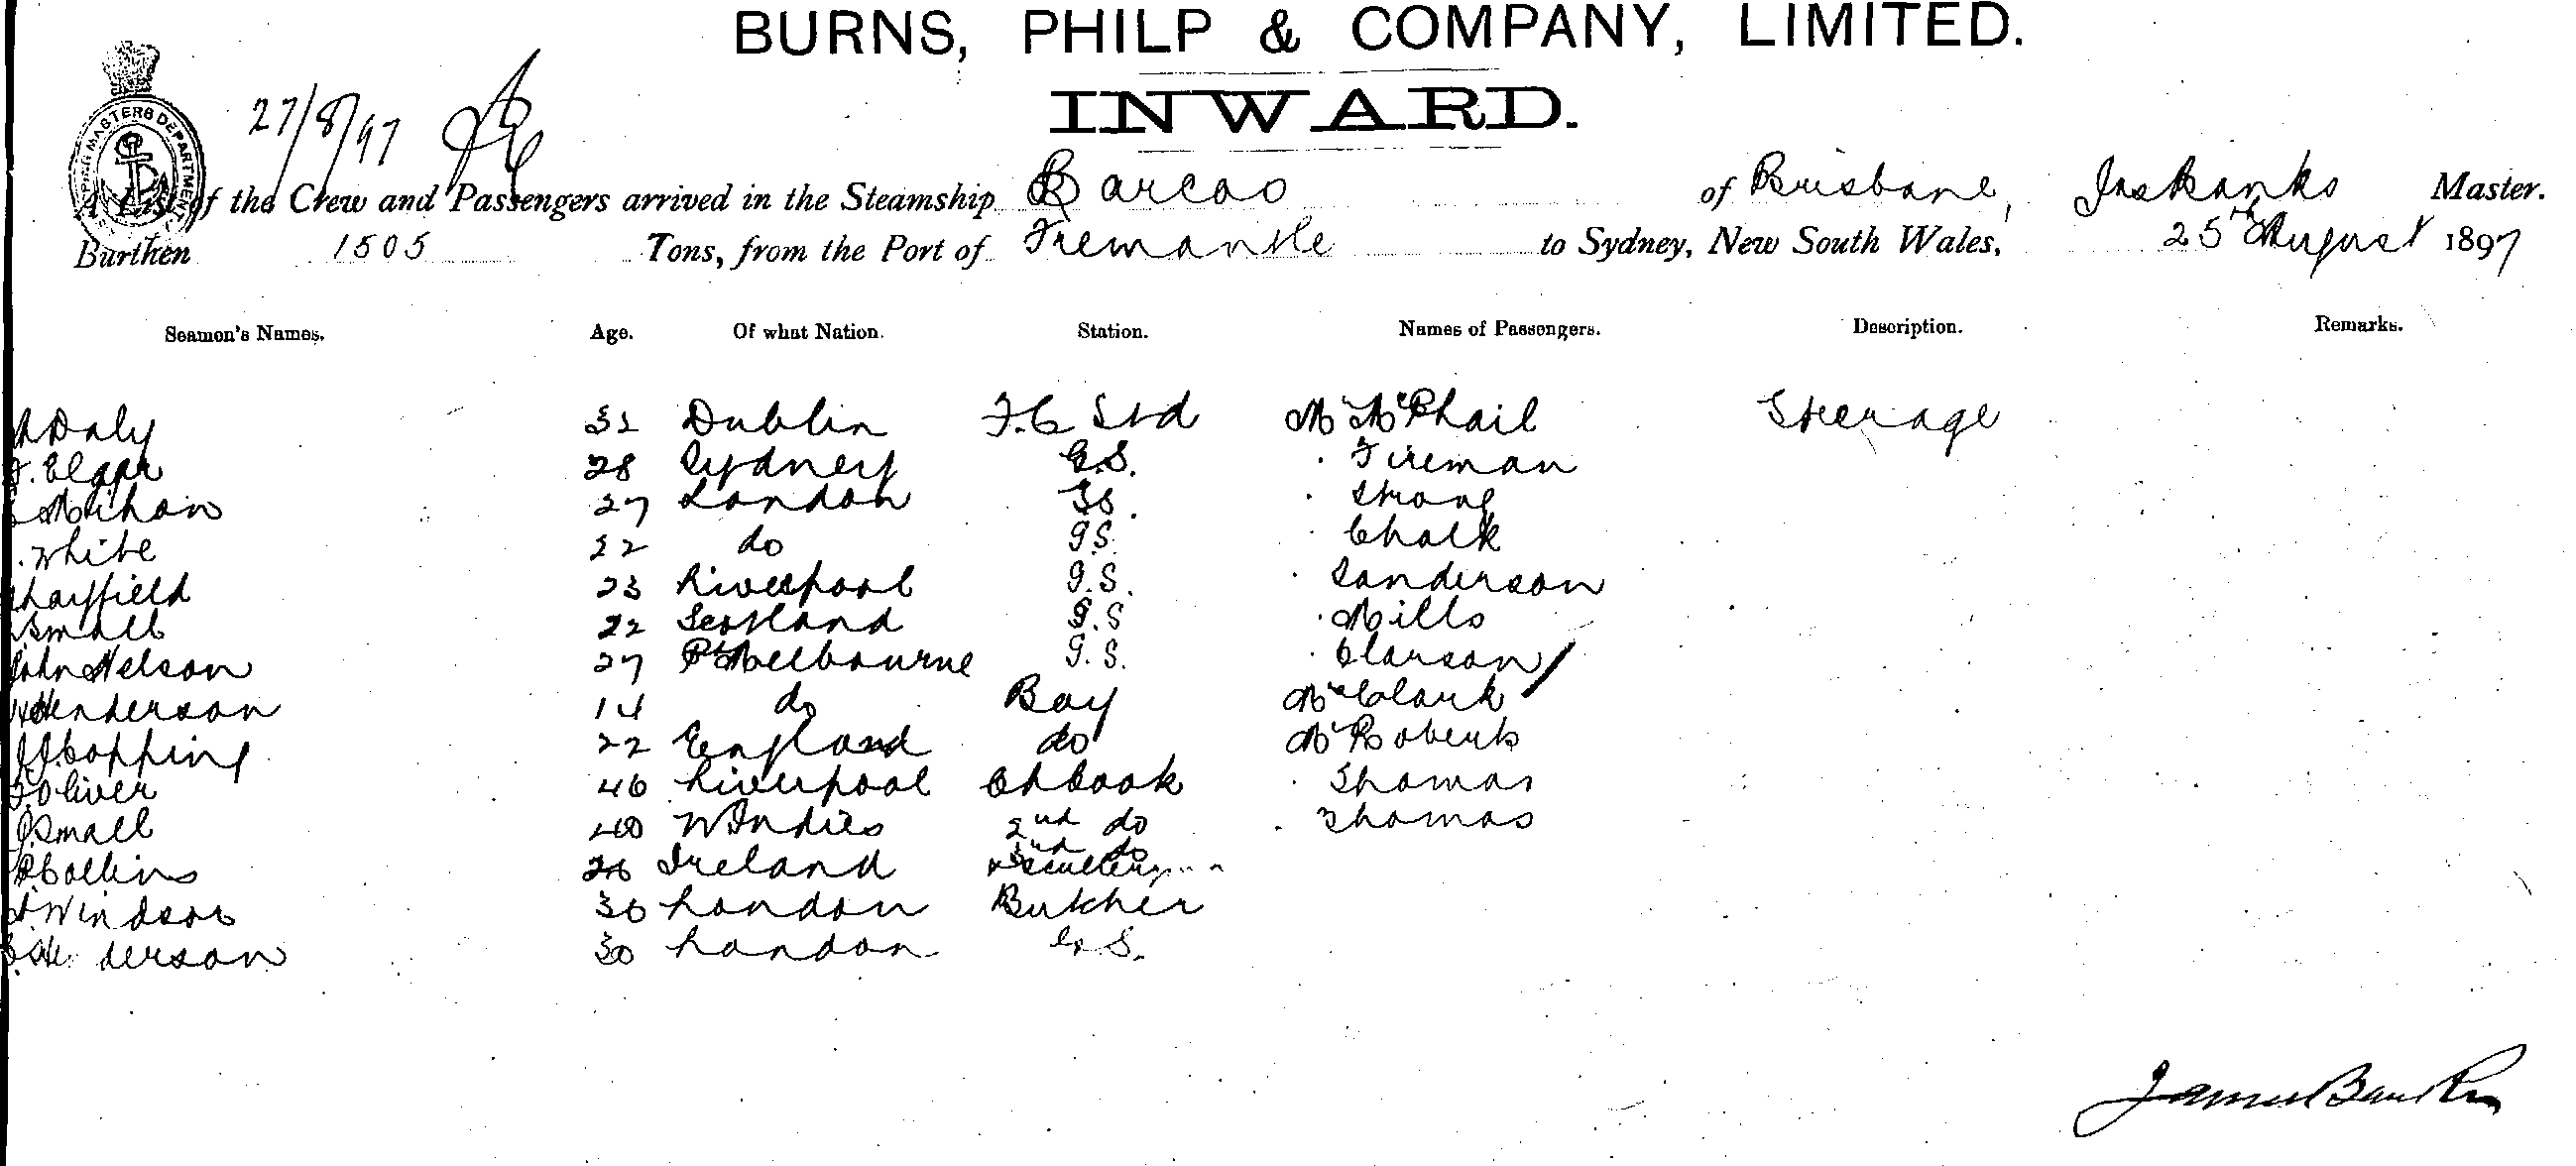 BURNS, PHILP & COMPANY, LIMITED.
INWARD.
27/8/97
A List of the Crew and Passengers arrived in the Steamship Barcoo of Brisbane, Jas Banks Master.
Burthen 1505 Tons, from the Port of Fremantle to Sydney, New South Wales, 25th August 1897
Seamen's Names. Age. Of what Nation. Station. Names of Passengers. Description. Remarks.
Daly 32 Dublin F.C Std Mr McPhail Steerage
Elgar 28 Sydney G.S. . Fireman
Mihan 27 London GS. . Strong
. White 22 do G.S. . Chalk
Layfield 23 Liverpool G.S. . Sanderson
Small 22 Scotland G.S . Mills
John Nelson 27 Pt Melbourne G.S. . Clarson
Henderson 14 do Boy Mrs Clark
J. Copping 22 England do Mr Roberts
Oliver 46 Liverpool Ch Cook . Thomas
J. Small 40 W Indies 2nd do . Thomas
P. Collins 26 Ireland 3rd do
Windsor 36 London Butcher
derson 30 London G.S.
James Banks